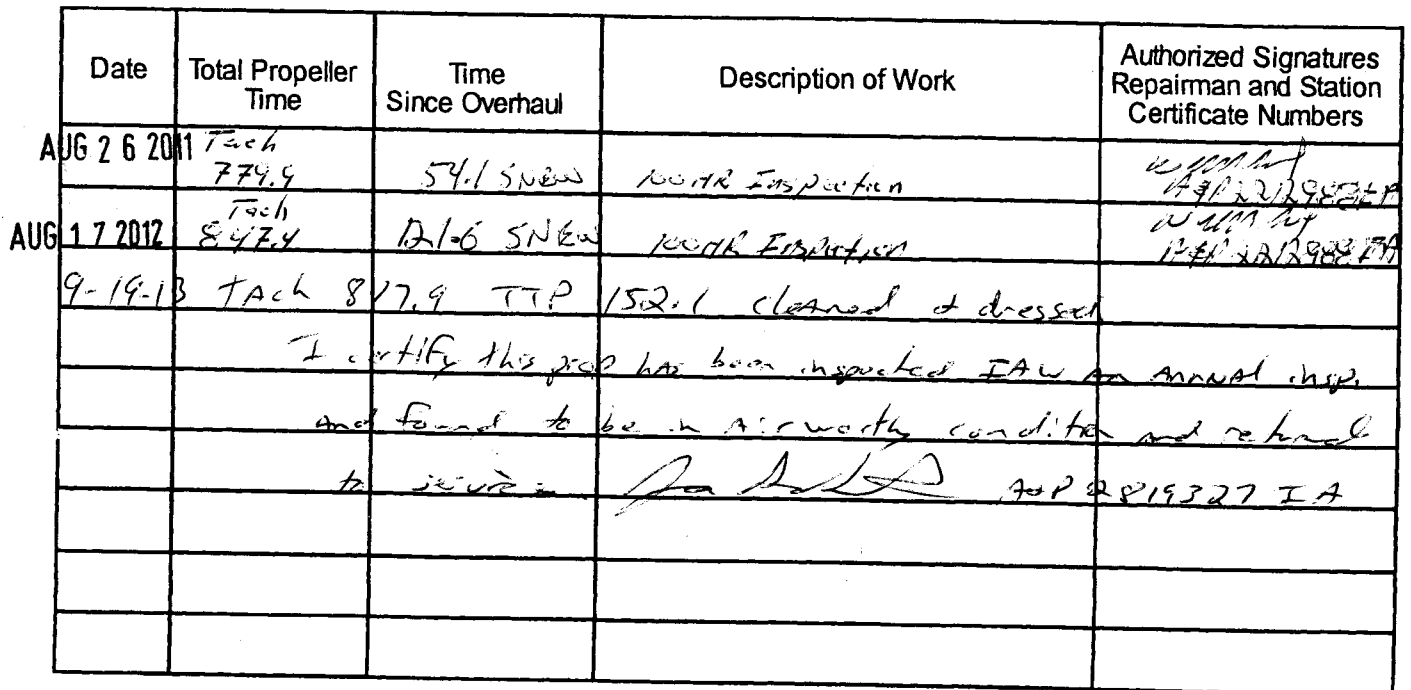 Date
Total Propeller Time
Time Since Overhaul
Description of Work
Authorized Signatures Repairman and Station Certificate Numbers
AUG 26 2011 Tach 779.9 54.1 SNEW 100 HR Inspection A&P 2212988 IA
AUG 17 2012 Tach 847.4 121.6 SNEW 100 HR Inspection A&P 2212988 IA
9-19-13 TAch 877.9 TTP 152.1 cleaned & dressed
I certify this prop has been inspected IAW An Annual insp.
and found to be in Airworthy condition and returned
to service A&P 2819327 IA